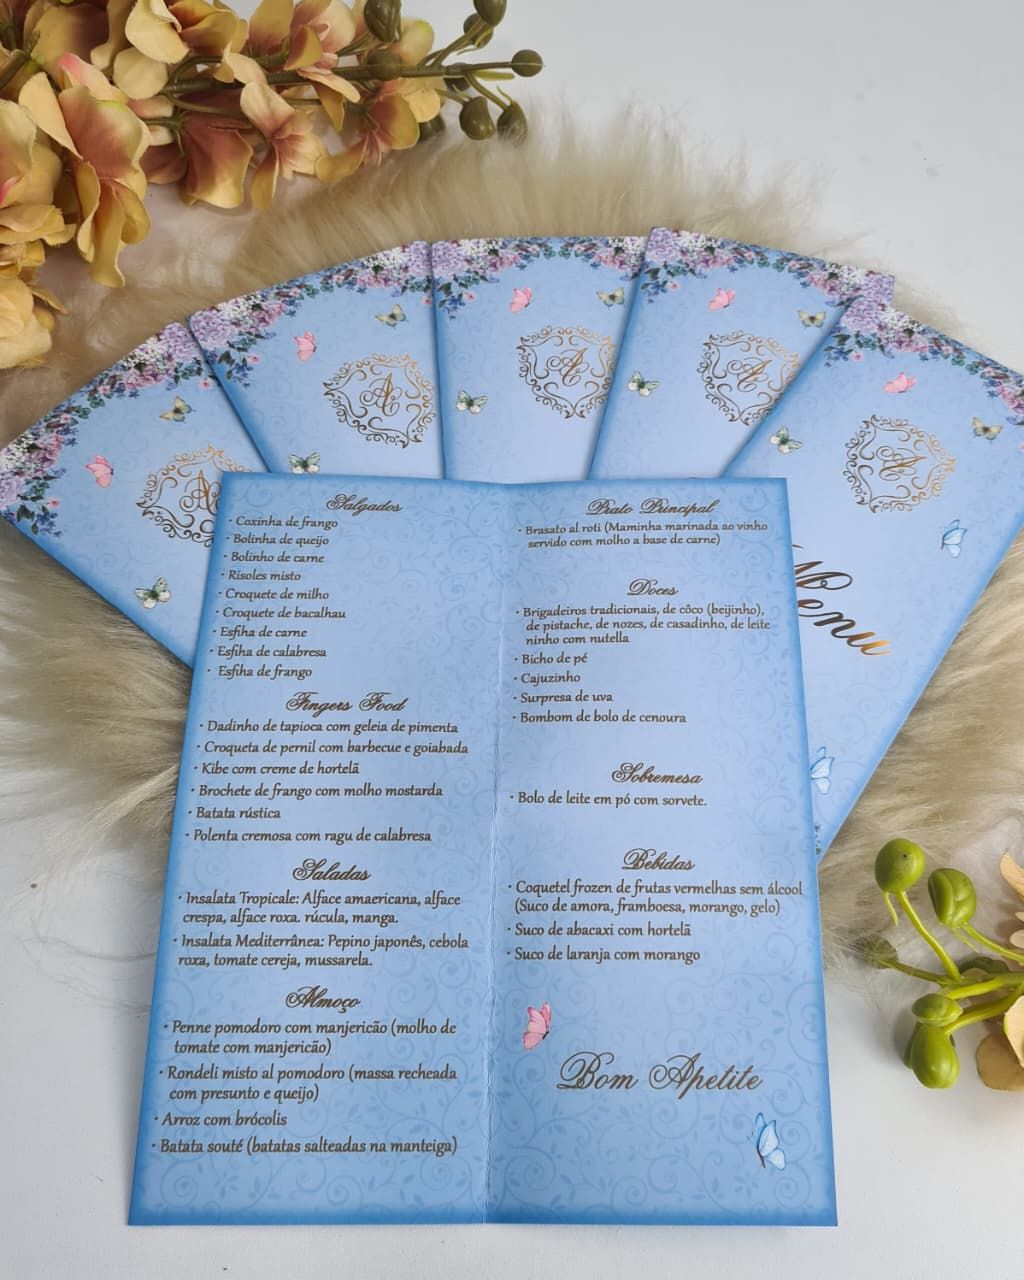 Menu
Salgados
· Coxinha de frango
· Bolinha de queijo
· Bolinho de carne
· Risoles misto
· Croquete de milho
· Croquete de bacalhau
· Esfiha de carne
· Esfiha de calabresa
· Esfiha de frango
Fingers Food
· Dadinho de tapioca com geleia de pimenta
· Croqueta de pernil com barbecue e goiabada
· Kibe com creme de hortelã
· Brochete de frango com molho mostarda
· Batata rústica
· Polenta cremosa com ragu de calabresa
Saladas
· Insalata Tropicale: Alface amaericana, alface
crespa, alface roxa. rúcula, manga.
· Insalata Mediterrânea: Pepino japonês, cebola
roxa, tomate cereja, mussarela.
Almoço
· Penne pomodoro com manjericão (molho de
tomate com manjericão)
· Rondeli misto al pomodoro (massa recheada
com presunto e queijo)
· Arroz com brócolis
· Batata souté (batatas salteadas na manteiga)
Prato Principal
· Brasato al roti (Maminha marinada ao vinho
servido com molho a base de carne)
Doces
· Brigadeiros tradicionais, de côco (beijinho),
de pistache, de nozes, de casadinho, de leite
ninho com nutella
· Bicho de pé
· Cajuzinho
· Surpresa de uva
· Bombom de bolo de cenoura
Sobremesa
· Bolo de leite em pó com sorvete.
Bebidas
· Coquetel frozen de frutas vermelhas sem álcool
(Suco de amora, framboesa, morango, gelo)
· Suco de abacaxi com hortelã
· Suco de laranja com morango
Bom Apetite